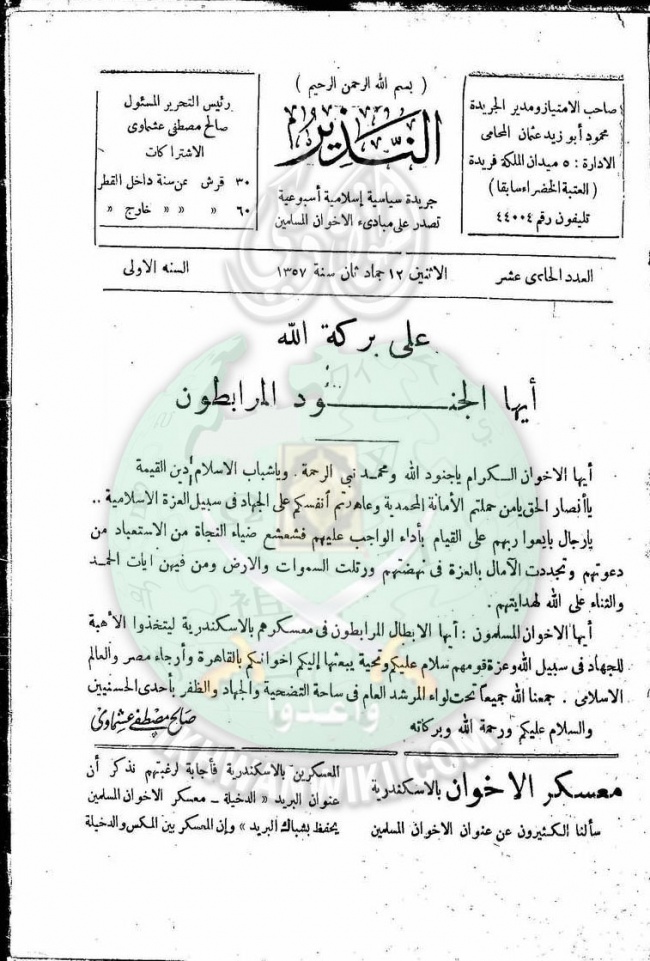 ( بسم الله الرحمن الرحيم )
النذير
جريدة سياسية إسلامية أسبوعية
تصدر على مبادىء الاخوان المسلمين
صاحب الامتياز ومدير الجريدة
محمود أبو زيد عثمان المحامى
الادارة : ٥ ميدان الملكة فريدة
( العتبة الخضراء سابقا )
تليفون رقم ٤٤٠٠٤
رئيس التحرير المسئول
صالح مصطفى عشماوى
الاشتراكات
٣٠ قرش عن سنة داخل القطر
٦٠ » » » خارج »
العدد الحادى عشر
الاثنين ١٢ جماد ثان سنة ١٣٥٧
السنه الاولى
على بركة الله
أيها الجنـــود المرابطون
أيها الاخوان الكرام ياجنود الله ومحمد نبي الرحمة . وياشباب الاسلام دين القيمة
ياأنصار الحق يامن حملتم الأمانة المحمدية وعاهدتم أنفسكم على الجهاد فى سبيل العزة الاسلامية ..
يارجال بايعوا ربهم على القيام بأداء الواجب عليهم فشعشع ضياء النجاة من الاستعباد من
دعوتهم وتجددت الآمال بالعزة فى نهضتهم ورتلت السموات والارض ومن فيهن ايات الحمد
والثناء على الله لهدايتهم .
أيها الاخوان المسلمون : أيها الابطال المرابطون فى معسكرهم بالاسكندرية ليتخذوا الأهبة
للجهاد فى سبيل الله وعزة قومهم سلام عليكم وتحية يبعثها إليكم اخوانكم بالقاهرة وأرجاء مصر والعالم
الاسلامى . جمعنا الله جميعاً تحت لواء المرشد العام فى ساحة التضحية والجهاد والظفر بأحدى الحسنيين
والسلام عليكم ورحمة الله وبركاته
صالح مصطفى عشماوى
معسكر الاخوان بالاسكندرية
سألنا الكثيرون عن عنوان الاخوان المسلمين
المعسكرين بالاسكندرية فأجابة لرغبتهم نذكر أن
عنوان البريد « الدخيلة ــ معسكر الاخوان المسلمين
يحفظ بشباك البريد » وإن المعسكر بين المكس والدخيلة
وأعدوا
IKHWANWIKI.COM